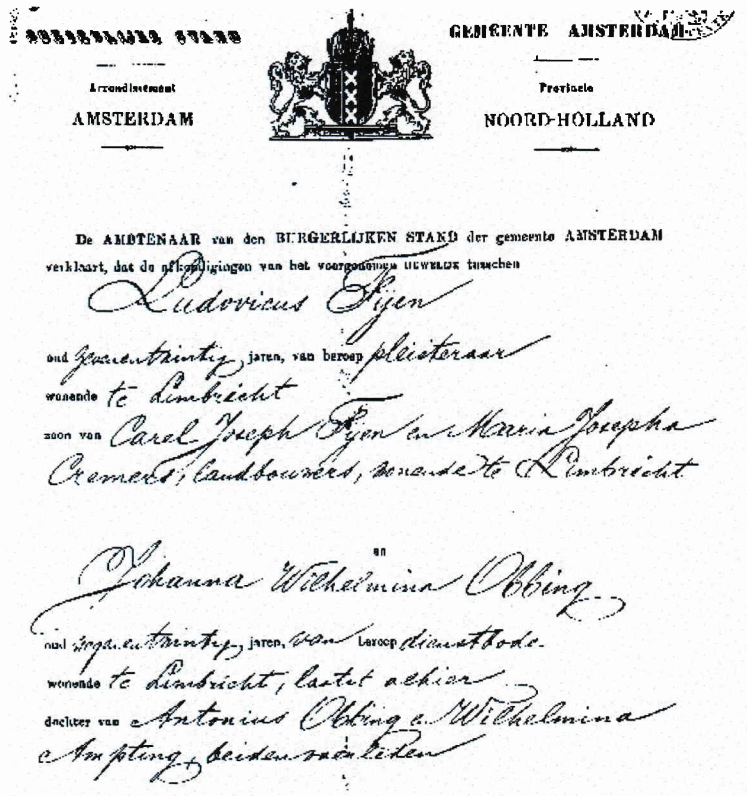 BURGERLIJKE STAND
GEMEENTE AMSTERDAM
Arrondissement
AMSTERDAM
Provincie
NOORD-HOLLAND
De AMBTENAAR van den BURGERLIJKEN STAND der gemeente AMSTERDAM
verklaart, dat de afkondigingen van het voorgenomen HUWELIJK tusschen
Ludovicus Fijen
oud zevenentwintig jaren, van beroep pleisteraar
wonende te Limbricht
zoon van Carel Joseph Fijen en Maria Josepha
Cremers, landbouwers, wonende te Limbricht
en
Johanna Wilhelmina Obbing
oud zevenentwintig jaren, van beroep dienstbode
wonende te Limbricht, laatst alhier
dochter van Antonius Obbing e Wilhelmina
Ampting, beiden overleden